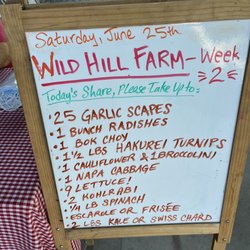 Saturday, June 25th
WILD HILL FARM - Week 2
Today's Share, Please Take Up to:
• 25 GARLIC SCAPES
• 1 BUNCH RADISHES
• 1 BOK CHOY
• 1 1/2 LBS HAKUREI TURNIPS
• 1 CAULIFLOWER & 1 BROCCOLINI
• 1 NAPA CABBAGE
• 9 LETTUCE!
• 2 KOHLRABI
• 3/4 LB SPINACH
• ESCAROLE OR FRISÉE
• 2 LBS KALE OR SWISS CHARD